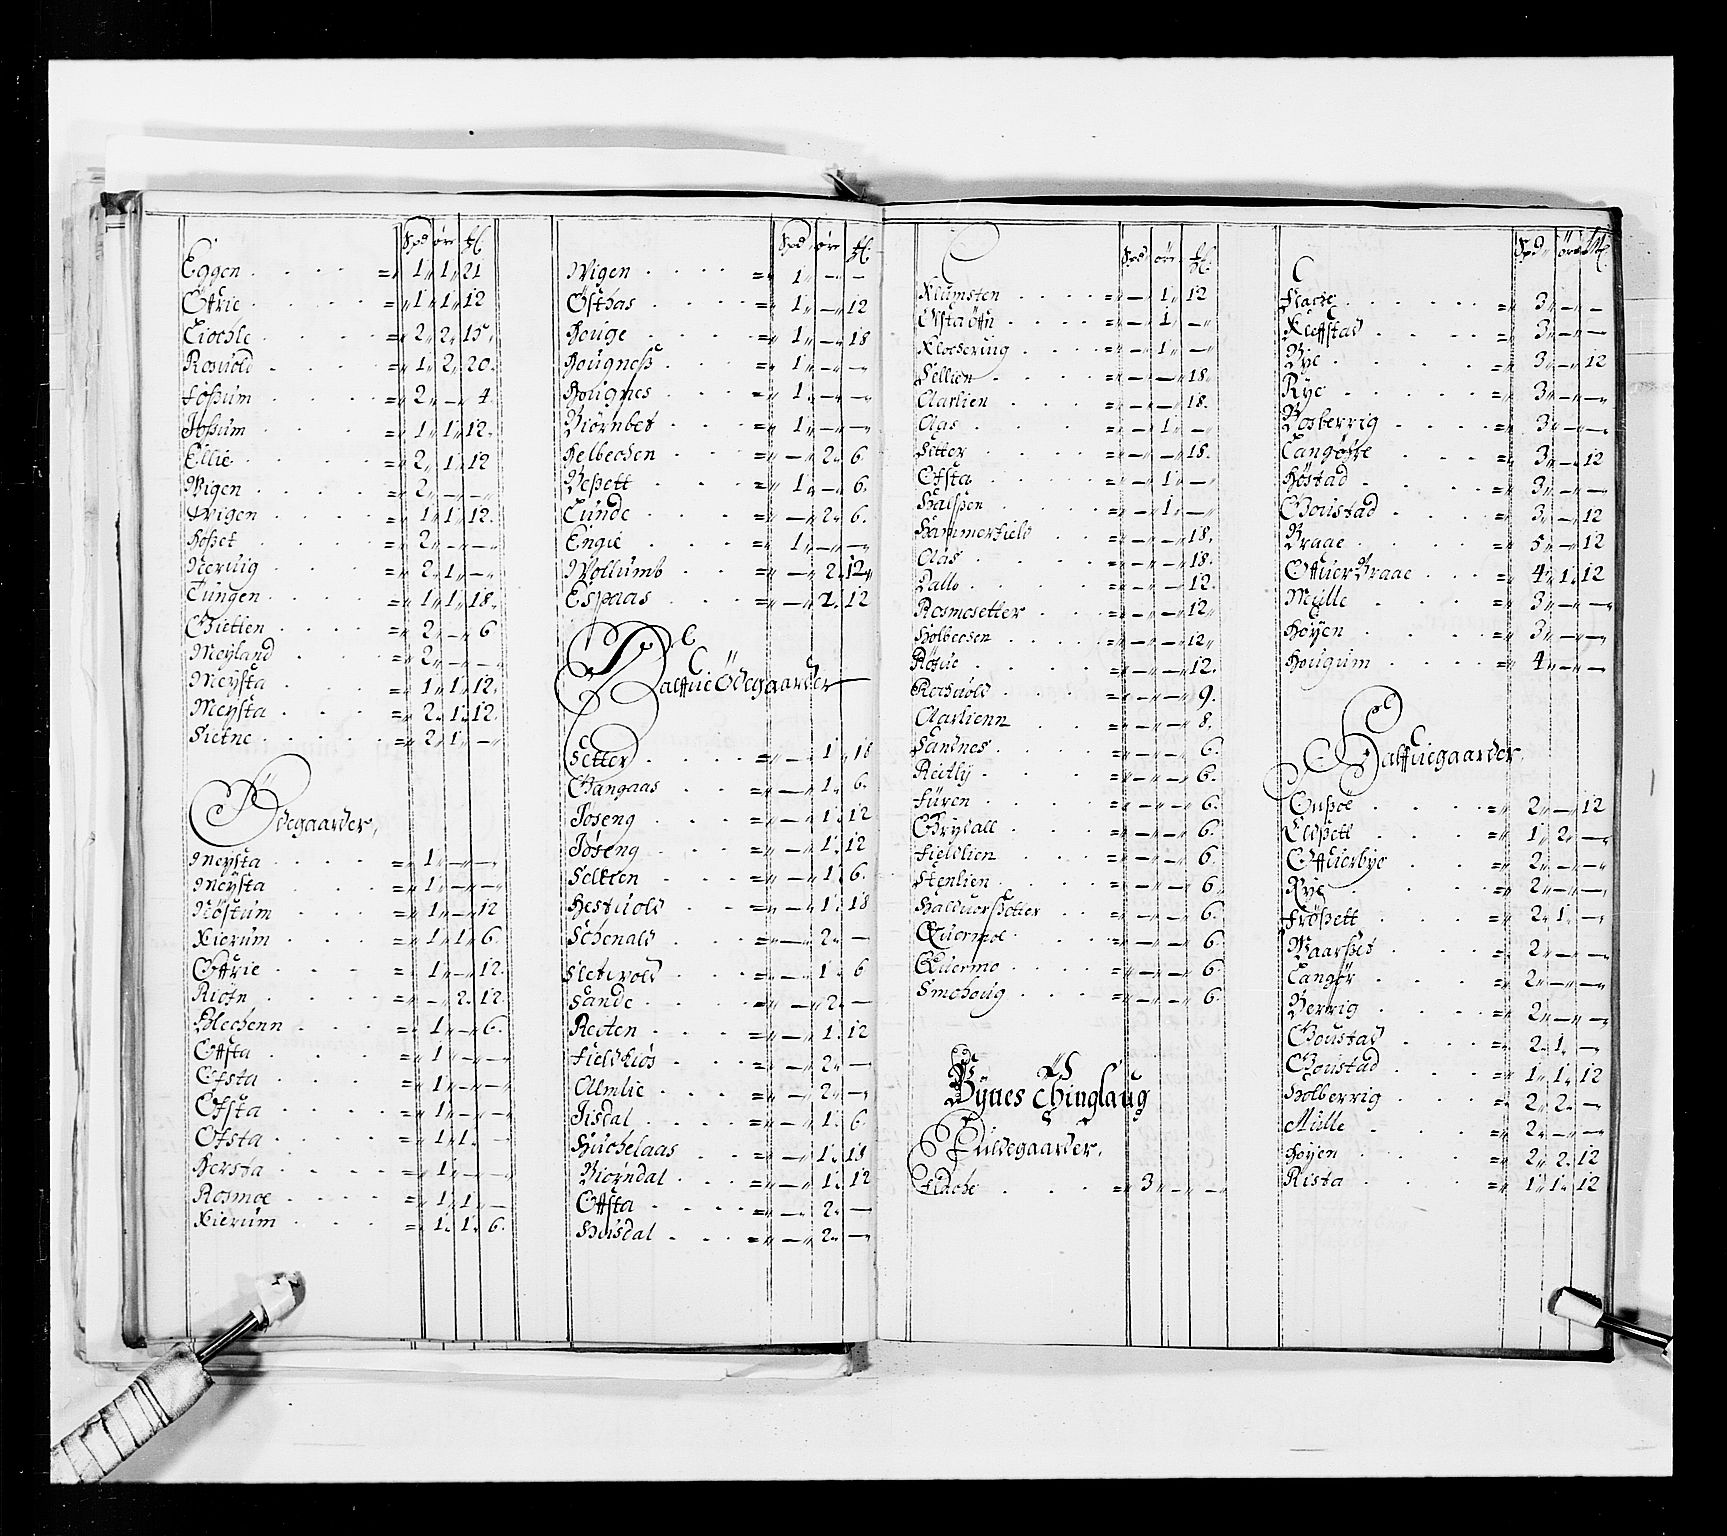 Spd øre ℔
Eggen . . . . = 1 " 1 " 21
Öffrie . . . . = 1 " 1 " 12
Eiochle . . . = 2 " 2 " 15
Rosuold . . . = 1 " 2 " 20
Foßum . . . = 2 " — " 4
Joßum . . . = 1 " 1 " 12
Ellie . . . = 2 " 1 " 12
Wigen . . . = 2 " — " —
Wigen . . . = 1 " 1 " 12
Hoßet . . . = 2 " — " —
Neruig . . . = 2 " 1 " —
Tungen . . . = 1 " 1 " 18
Gietlen . . . = 2 " — " 6
Meyland . . . = 2 " — " —
Meysta . . . = 1 " 1 " 12
Meysta . . . = 2 " 1 " 12
Sietne . . . = 2 " 1 " —
Ödegaarder,
Meysta . . . = 1 " — " —
Meysta . . . = 1 " — " —
Nöstum . . . = 1 " — " 12
Kierum . . . = 1 " 1 " 6
Öffrie . . . = 1 " — " 12
Riötn . . . = — " 2 " 12
Blechenn . . . = 1 " — " 6
Offsta . . . = 1 " — " —
Efsta . . . = 1 " — " —
Ofsta . . . = 1 " — " —
Ofsta . . . = 1 " 1 " —
Hersta . . . = 1 " — " —
Rosmoe . . . = 1 " 1 " —
Kierum . . . = 1 " 1 " 6
Spd øre ℔
Wigen . . . . = 1 " — " —
Östhas . . . = 1 " — " 12
Houge . . . = 1 " — " 18
Hougneß . . . = 1 " — " —
Hougnes . . . = 1 " — " —
Biörnbet . . . = 1 " — " —
Helbechen . . . = — " 2 " 6
Beßett . . . = 1 " — " 6
Lunde . . . = — " 2 " 6
Engie . . . = 1 " — " —
Wollumb . . . = — " 2 " 12
Espaas . . . = — " 2 " 12
Halffue Ödegaarder
Setter . . . = — " 1 " 18
Gangaas . . . = — " 1 " 6
Joseng . . . = — " 1 " 12
Joseng . . . = — " 1 " 12
Selkten . . . = — " 1 " 6
Hestuold . . . = — " 1 " 18
Schenald . . . = — " 2 " —
Sletuold . . . = — " 1 " 6
Sande . . . = — " 2 " —
Reiten . . . = — " 1 " 12
Fieldkiøs . . . = — " 2 " —
Almlie . . . = — " 2 " —
Iisdal . . . = — " 1 " 6
Huchelaas . . . = — " 1 " 18
Biörndal . . . = — " 1 " 12
Offsta . . . = — " 2 " —
Huisdal . . . = — " 2 " —
Spd øre ℔
Klumsten . . . = — " 1 " 12
= — " 1 " —
Klocheruig . . . = — " 1 " —
Sellien . . . = — " — " 18
Aarlien . . . = — " — " 18
Aas . . . = — " 1 " —
Setter . . . = — " — " 18
Efsta . . . = — " 1 " —
Halsßen . . . = — " 1 " —
Hammerfield . . . = — " — " 18
Aas . . . = — " — " 18
Dallo . . . = — " — " 12
Rosmosetter . . . = — " — " 12
Holbechen . . . = — " — " 12
Röfue . . . = — " — " 12
Rochuold . . . = — " — " 9
Aarlienn . . . = — " — " 8
Sandnes . . . = — " — " 6
Reitly . . . = — " — " 6
Furen . . . = — " — " 6
Grydall . . . = — " — " 6
Fieldlien . . . = — " — " 6
Stenlien . . . = — " — " 6
Halduorßetter . . = — " — " 6
Quermoe . . . = — " — " 6
Quermo . . . = — " — " 6
Smohoug . . . = — " — " 6
Bynes Thinglaug
Fuldegaarder.
Flache . . . = 3 " — " —
Spd øre ℔
Flache . . . = 3 " — " —
Kleffstad . . . = 3 " — " —
Bye . . . = 3 " — " 12
Rye . . . = 3 " — " —
Bosberrig . . . = 3 " — " —
Langøre . . . = 3 " — " 12
Höstad . . . = 3 " — " —
Goustad . . . = 3 " — " 12
Braae . . . = 5 " — " 12
Offuer Braae . . . = 4 " 1 " 12
Mulle . . . = 3 " — " —
Höyen . . . = 3 " — " —
Hougum . . . = 4 " — " —
Halffuegaarder.
Onßoe . . . = 2 " — " 12
Eldßett . . . = 1 " 2 " —
Offuerbye . . . = 2 " — " —
Rye . . . = 2 " — " —
Frößett . . . = 2 " 1 " —
Maarßet . . . = 2 " — " —
Langör . . . = 2 " — " —
Berrig . . . = 2 " — " —
Goustad . . . = 2 " 1 " —
Goustad . . . = 1 " 1 " 12
Holberrig . . . = 2 " 2 " —
Mulle . . . = 2 " — " —
Höyen . . . = 2 " 2 " 12
Rista . . . = 1 " 1 " 12